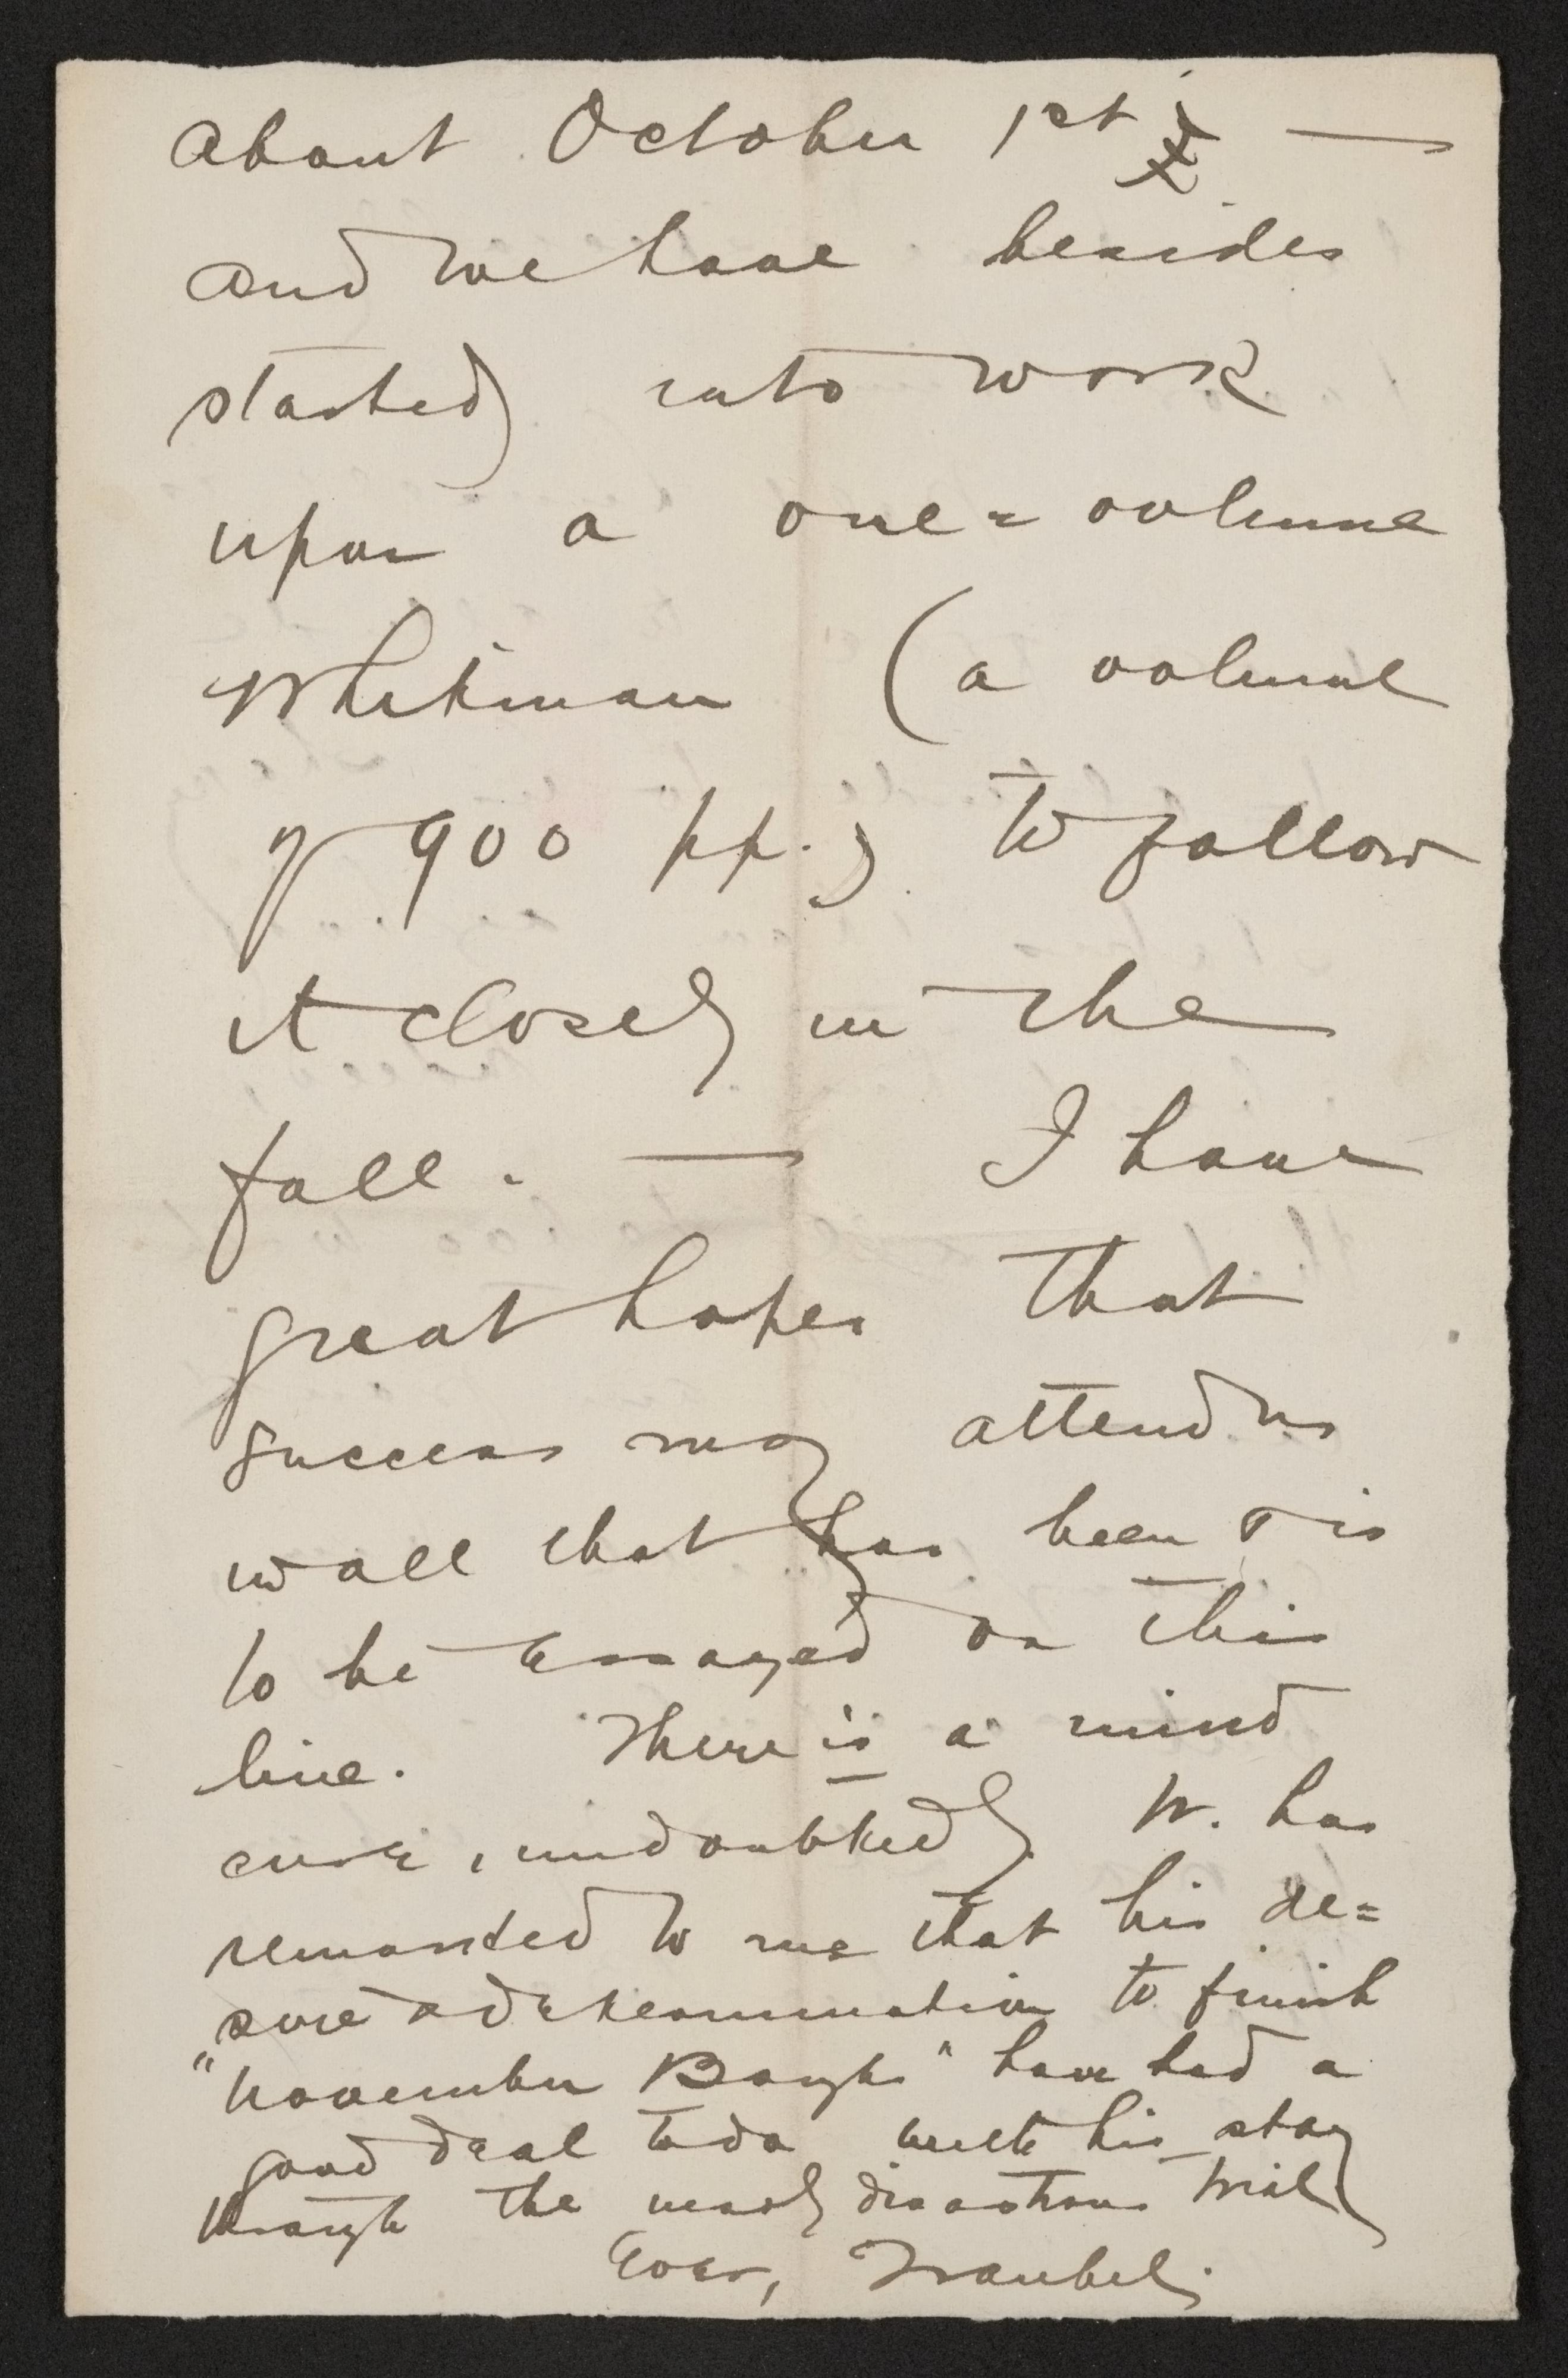 about October 1st —
and we have besides
started into work
upon a one=volume
Whitman (a volume
of 900 pp.) to follow
it closely in the
fall. — I have
great hopes that
success may attend us
in all that has been & is
to be essayed on this
line. There is a mind
cure, undoubtedly W. has
remarked to me that his de=
sire & determination to finish
"November Boughs" have had a
good deal to do with his stay
through the nearly disastrous trial
Ever, Traubel.